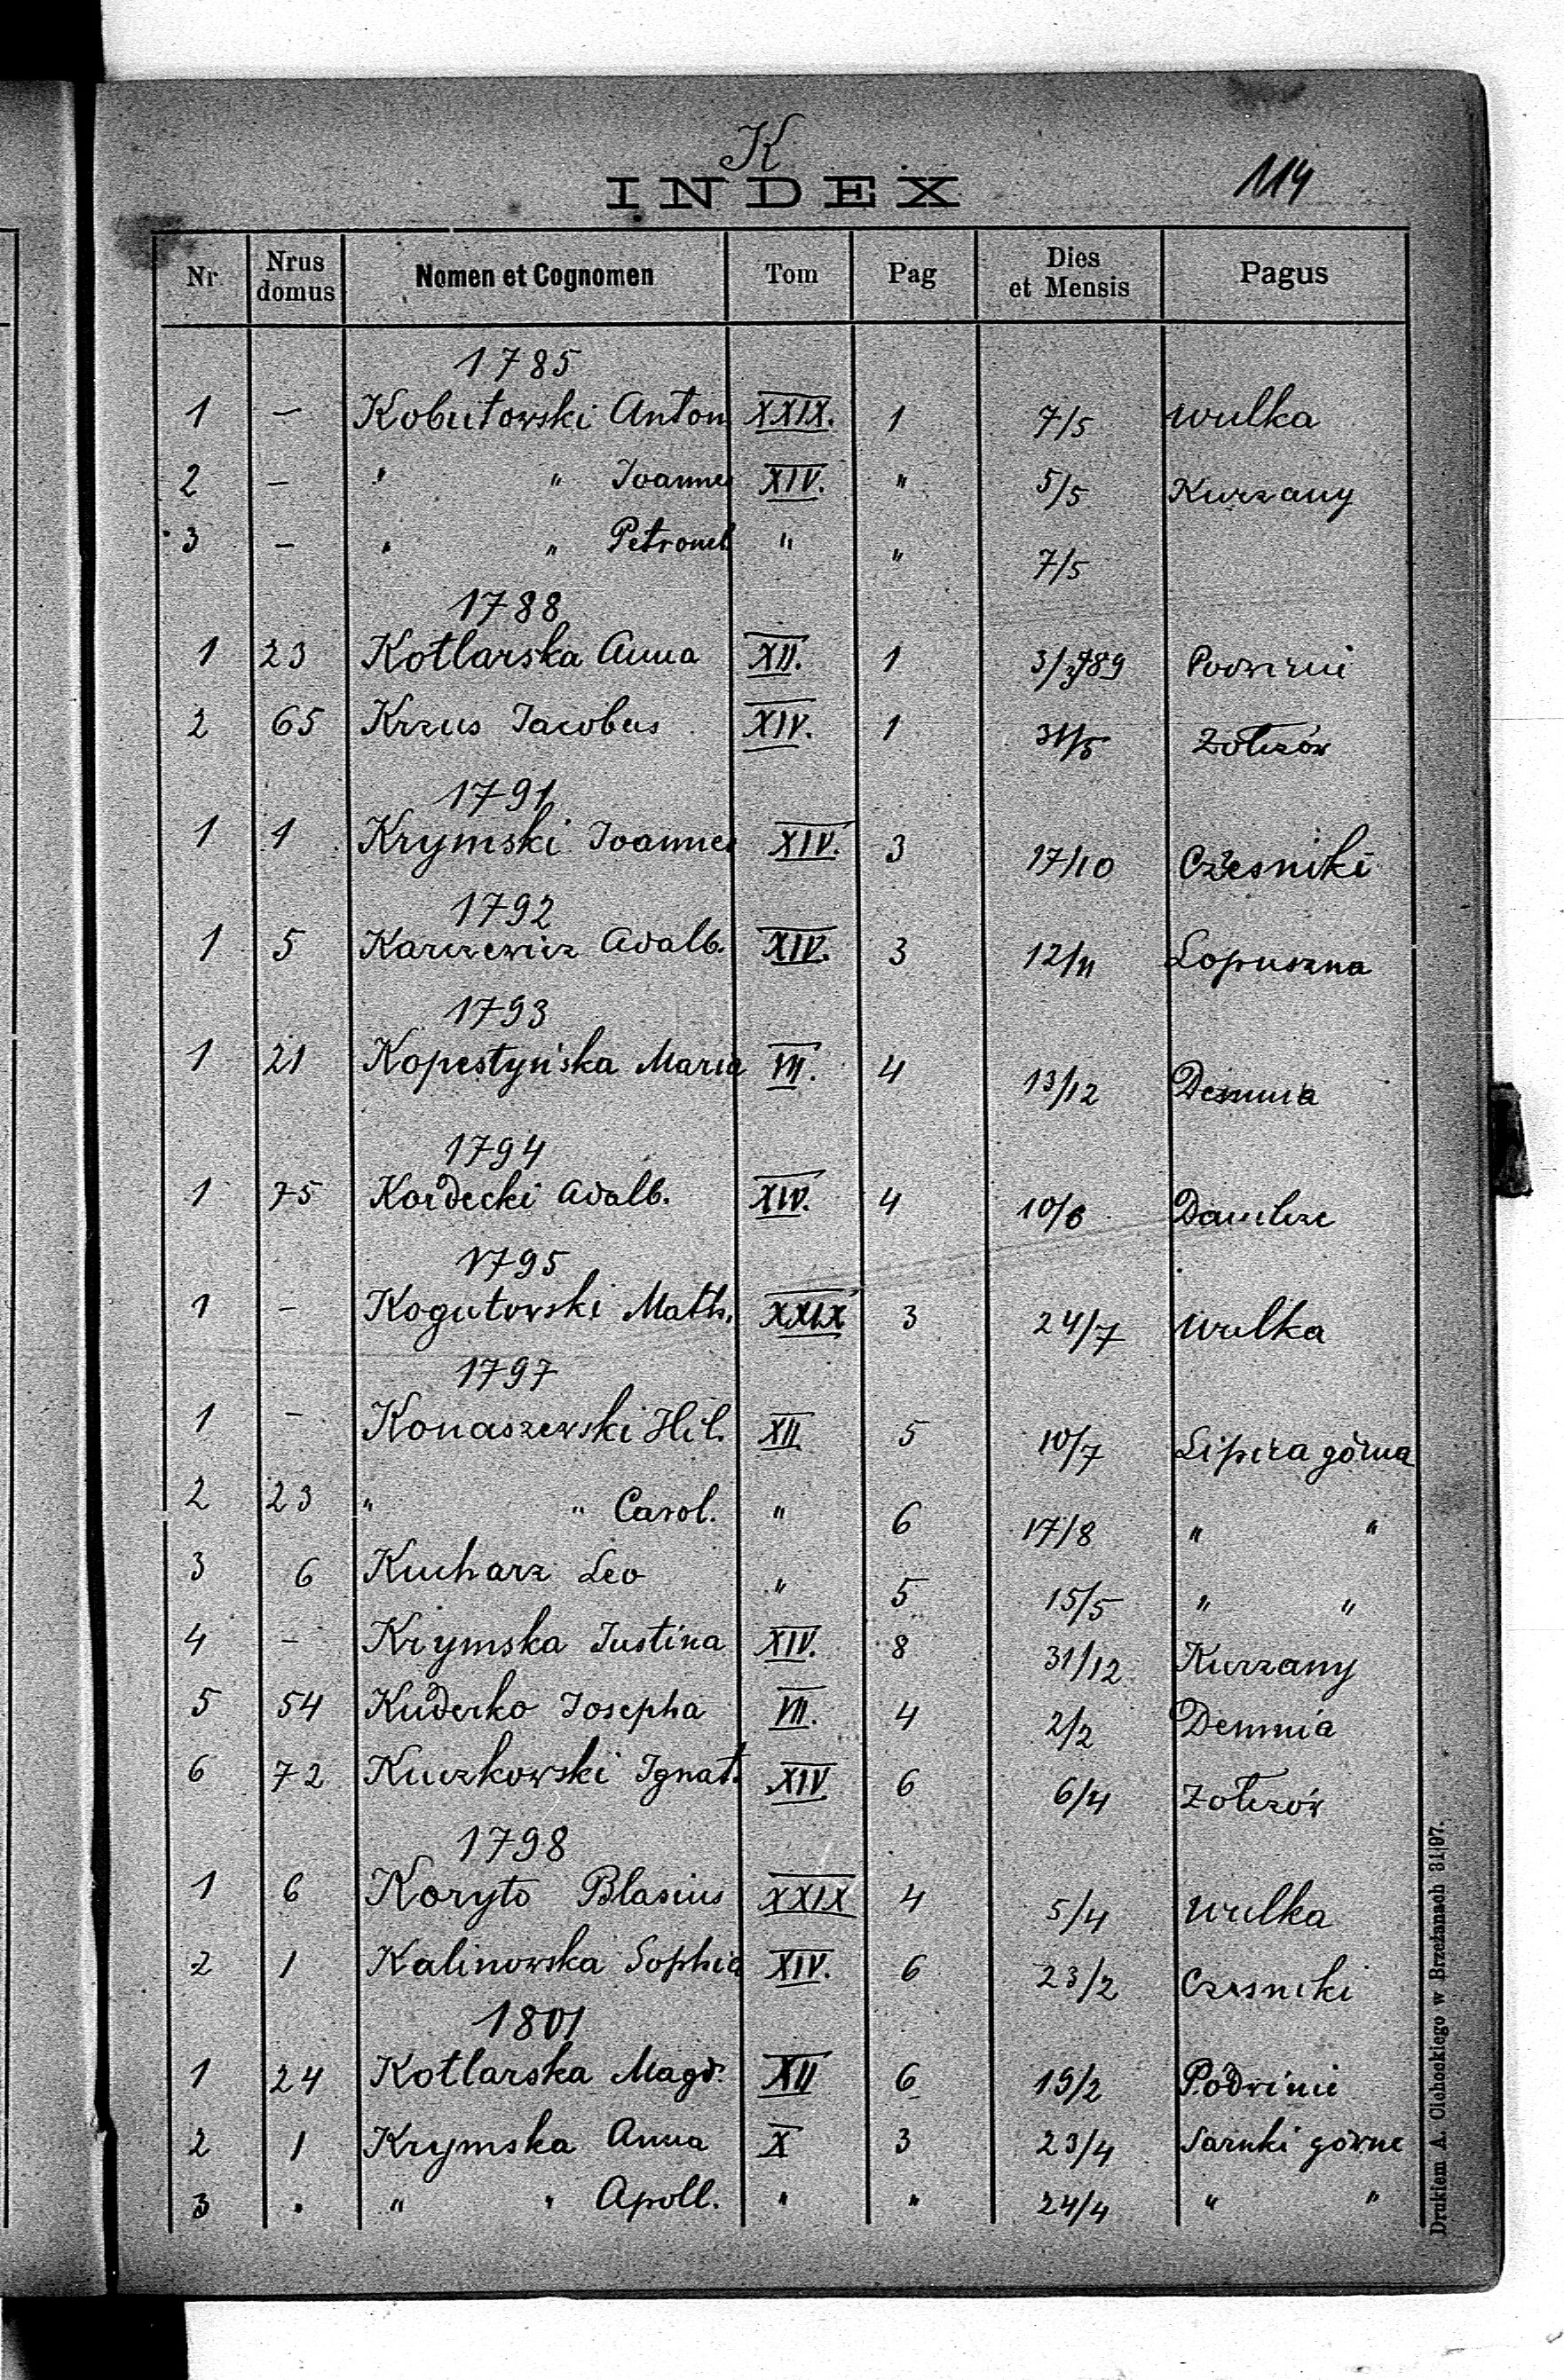 K
INDEX 114
Nr Nrus domus Nomen et Cognomen Tom Pag Dies et Mensis Pagus
1785
1 – Kobutowski Anton XXIX. 1 7/5 Wulka
2 – " " Joannes XIV. " 5/5 Kurzany
3 – " " Petronel " " 7/5
1788
1 23 Kotlarska Anna XII. 1 Podwinie
2 65 Krzus Jacobus XIV. 1 31/5 Żołczów
1791
1 1 Krymski Joannes XIV. 3 17/10 Cześniki
1792
1 5 Karczewicz Adalb. XIV. 3 12/11 Lopuszna
1793
1 21 Kopestyńska Maria VII. 4 13/12 Demnia
1794
1 75 Kordecki Adalb. XIV. 4 10/6 Danilcze
1795
1 – Kogutowski Math. XXIX 3 24/7 Wulka
1797
1 – Konaszewski Hil. XII 5 10/7 Lipica górna
2 23 " " Carol. " 6 17/8 " "
3 6 Kucharz Leo " 5 15/5 " "
4 – Krymska Justina XIV. 8 31/12 Kurzany
5 54 Kuderko Josepha VII. 4 2/2 Demnia
6 72 Kuczkowski Ignat. XIV 6 6/4 Żołczów
1798
1 6 Koryto Blasius XXIX 4 5/4 Wulka
2 1 Kalinowska Sophia XIV. 6 23/2 Czesniki
1801
1 24 Kotlarska Magd. XII 6 19/2 Podwinie
2 1 Krymska Anna X 3 23/4 Sarnki górne
3 " " " Apoll. " " 24/4 " "
Drukiem A. Cichockiego w Brzeżanach 31/97.